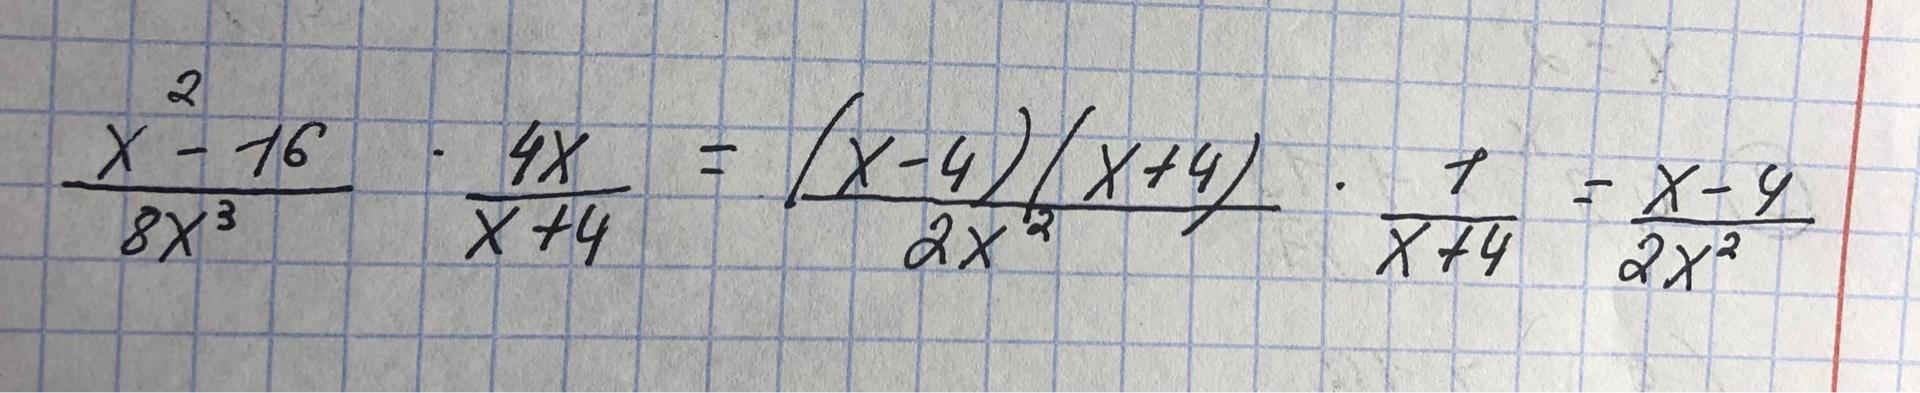 (x² - 16)/(8x³) · (4x)/(x+4) = ((x-4)(x+4))/(2x²) · 1/(x+4) = (x-4)/(2x²)